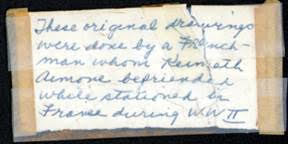 These original drawings
were done by a French-
man whom Kenneth
Aimone befriended
while stationed in
France during WW II